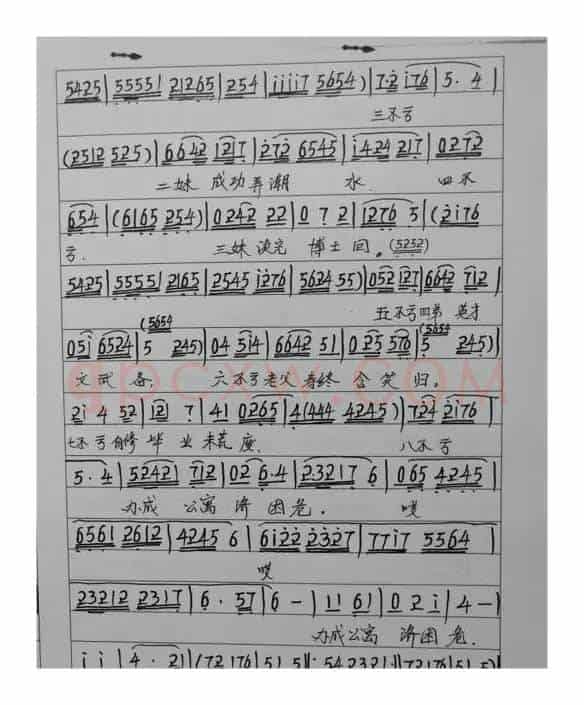 5425|55551 21265|254|iiii7 5654)|72 i76|5. 4|
三不亏
(2512 525)|6642 127|272 6545|i424 217|0272|
二妹 成功弄潮 水. 四不
654|(6165 254)|0242 22|0 7 2|1276 5|(2i76
亏. 三妹 读完 博士回。(5252)
5425|55551 2165|2545 i276|5624 55)|052 127|6642 712|
五不亏四弟 英才
(5654 (5654
05i 6524|5 245)|04 5i4|6642 51|025 576|5 245)|
文武备, 六不亏老父春终 含笑归。
qpcxw.com
2i 4 52|12 7|41 0265|4(444 4245)|724 2i76|
七不亏自修毕 业未荒废. 八不亏
5. 4|52421 712|02 6.4|23217 6|065 4245|
办成 公寓 济困危. 嘆
6561 2612|4245 6|6i22 2327|77i7 5564|
嘆
23212 2317|6. 57|6 -|11 61|0 2 i|4-)
办成公寓 济困危.
i i|4. 21|(72176|51 5|: 54 2321 :||72176|51 5)